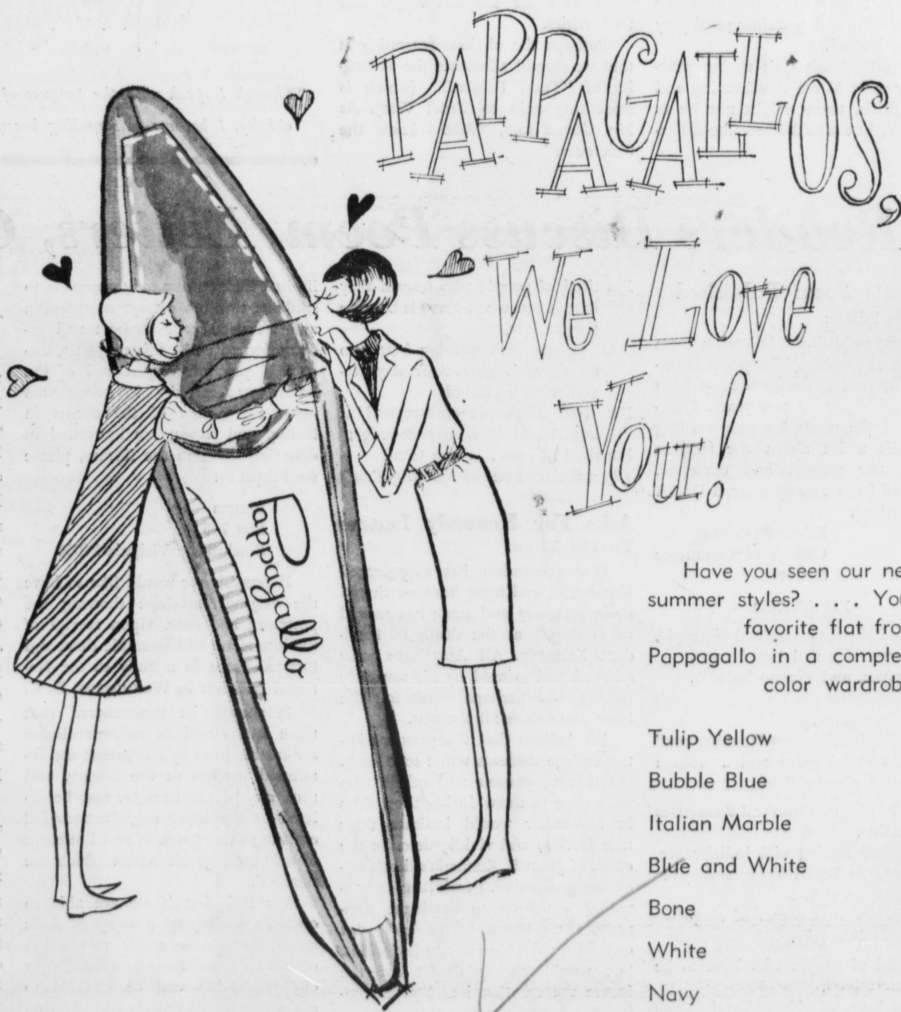 PAPPAGALLOS,
We Love
You!
Pappagallo
Have you seen our ne
summer styles? . . . You
favorite flat fro
Pappagallo in a comple
color wardrob
Tulip Yellow
Bubble Blue
Italian Marble
Blue and White
Bone
White
Navy